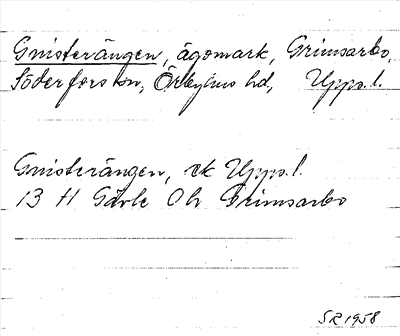 Gnisterängen, ägomark, Grimsarbo,
Söderfors sn, Örbyhus hd, Upps. l.
Gnisterängen, ek Upps. l.
13 H Gävle Oh Grimsarbo
SR 1958